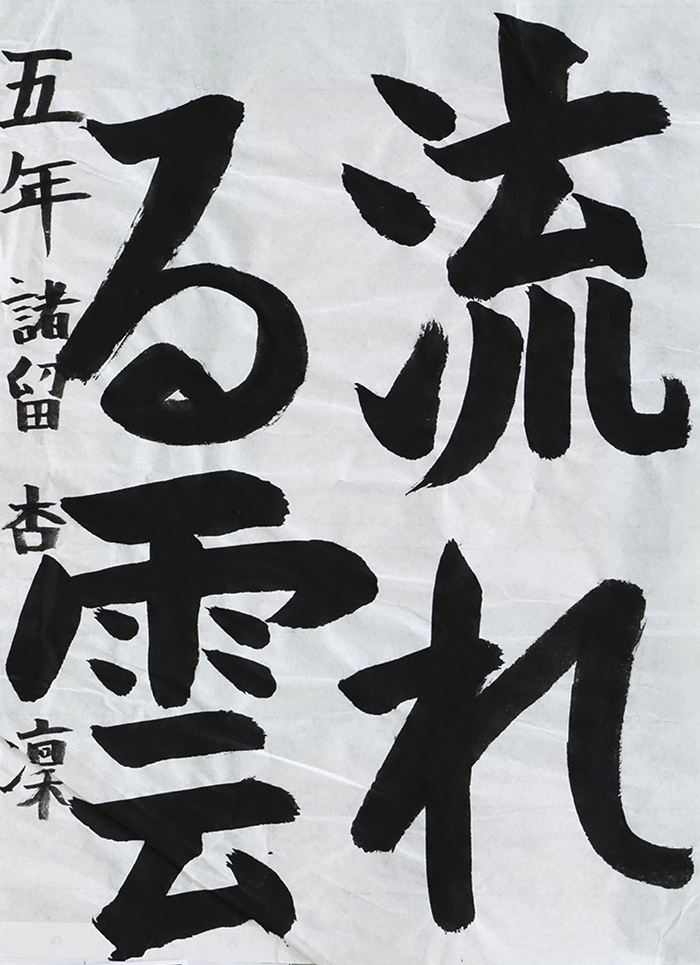 流れ
る雲
五年 諸留 杏凜